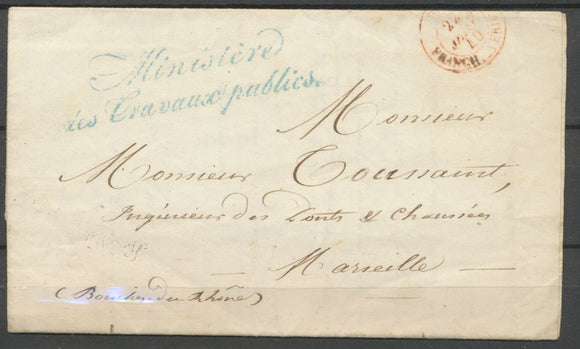 Ministère
des Travaux publics.
FRANCH
Monsieur
Monsieur Toussaint,
Ingénieur des Ponts & Chaussées
Marseille
(Bouches du Rhône)